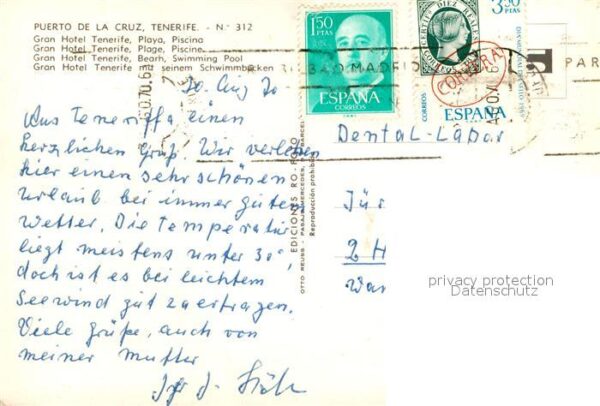 PUERTO DE LA CRUZ, TENERIFE. - N.° 312
Gran Hotel Tenerife, Playa, Piscina
Gran Hotel Tenerife, Plage, Piscine
Gran Hotel Tenerife, Bearh, Swimming Pool
Gran Hotel Tenerife mit seinem Schwimmbecken
30. Aug 70
Aus Teneriffa einen
herzlichen Gruß. Wir verleben
hier einen sehr schönen
Urlaub bei immer gutem
Wetter. Die Temperatur
liegt meistens unter 30°,
doch ist es bei leichtem
Seewind gut zu ertragen.
Viele Grüße, auch von
meiner Mutter
Ihr J.
EDICIONES RO-FOTO
OTTO REUSS - PASAJE MERCEDES, - BARCEL
Reproducción prohibida
1'50
PTAS
CORREOS
ESPAÑA
3,50
PTAS
CERTIFDO DIEZ REALES
CORREOS
DIA MUNDIAL DEL SELLO
ESPAÑA
BILBAO MADRID
PAR
Dental-Labor
Für
2 H
War
privacy protection
Datenschutz